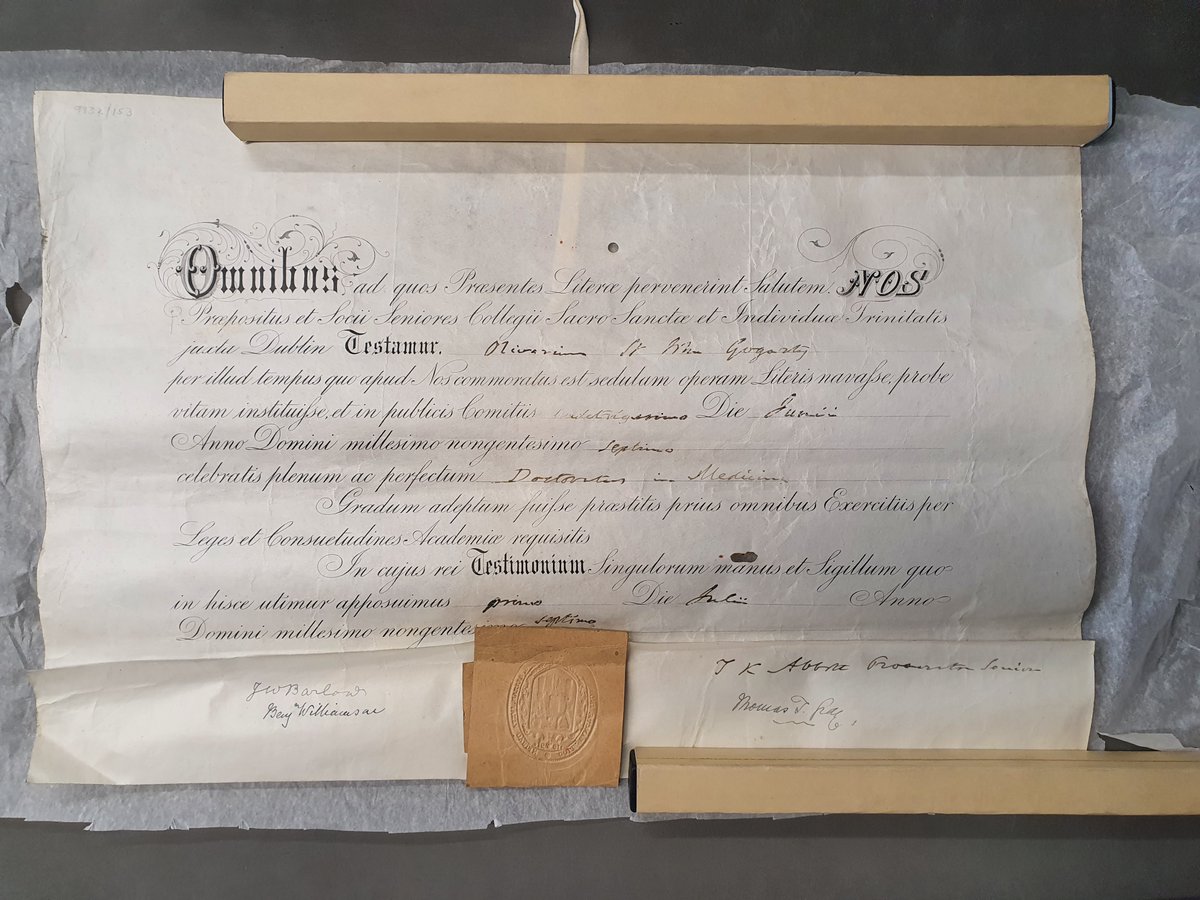 9932/153
Omnibus, ad quos Præsentes Literæ pervenerint Salutem. NOS
Præpositus et Socii Seniores Collegii Sacro Sanctæ et Individuæ Trinitatis
juxta Dublin Testamur, Oliverium St Gogarty
per illud tempus quo apud Nos commoratus est sedulam operam Literis navaſse, probe
vitam instituiſse, et in publicis Comitiis Die Junii
Anno Domini millesimo nongentesimo septimo
celebratis plenum ac perfectum Doctoratus in Medicina
Gradum adeptum fuiſse præstitis prius omnibus Exercitiis per
Leges et Consuetudines Academiæ requisitis
In cujus rei Testimonium Singulorum manus et Sigillum quo
in hisce utimur apposuimus primo Die Julii Anno
Domini millesimo nongentesimo septimo
T K Abbott Procurator Senior
J W Barlow
Benjn Williamson
Thomas T. Gray